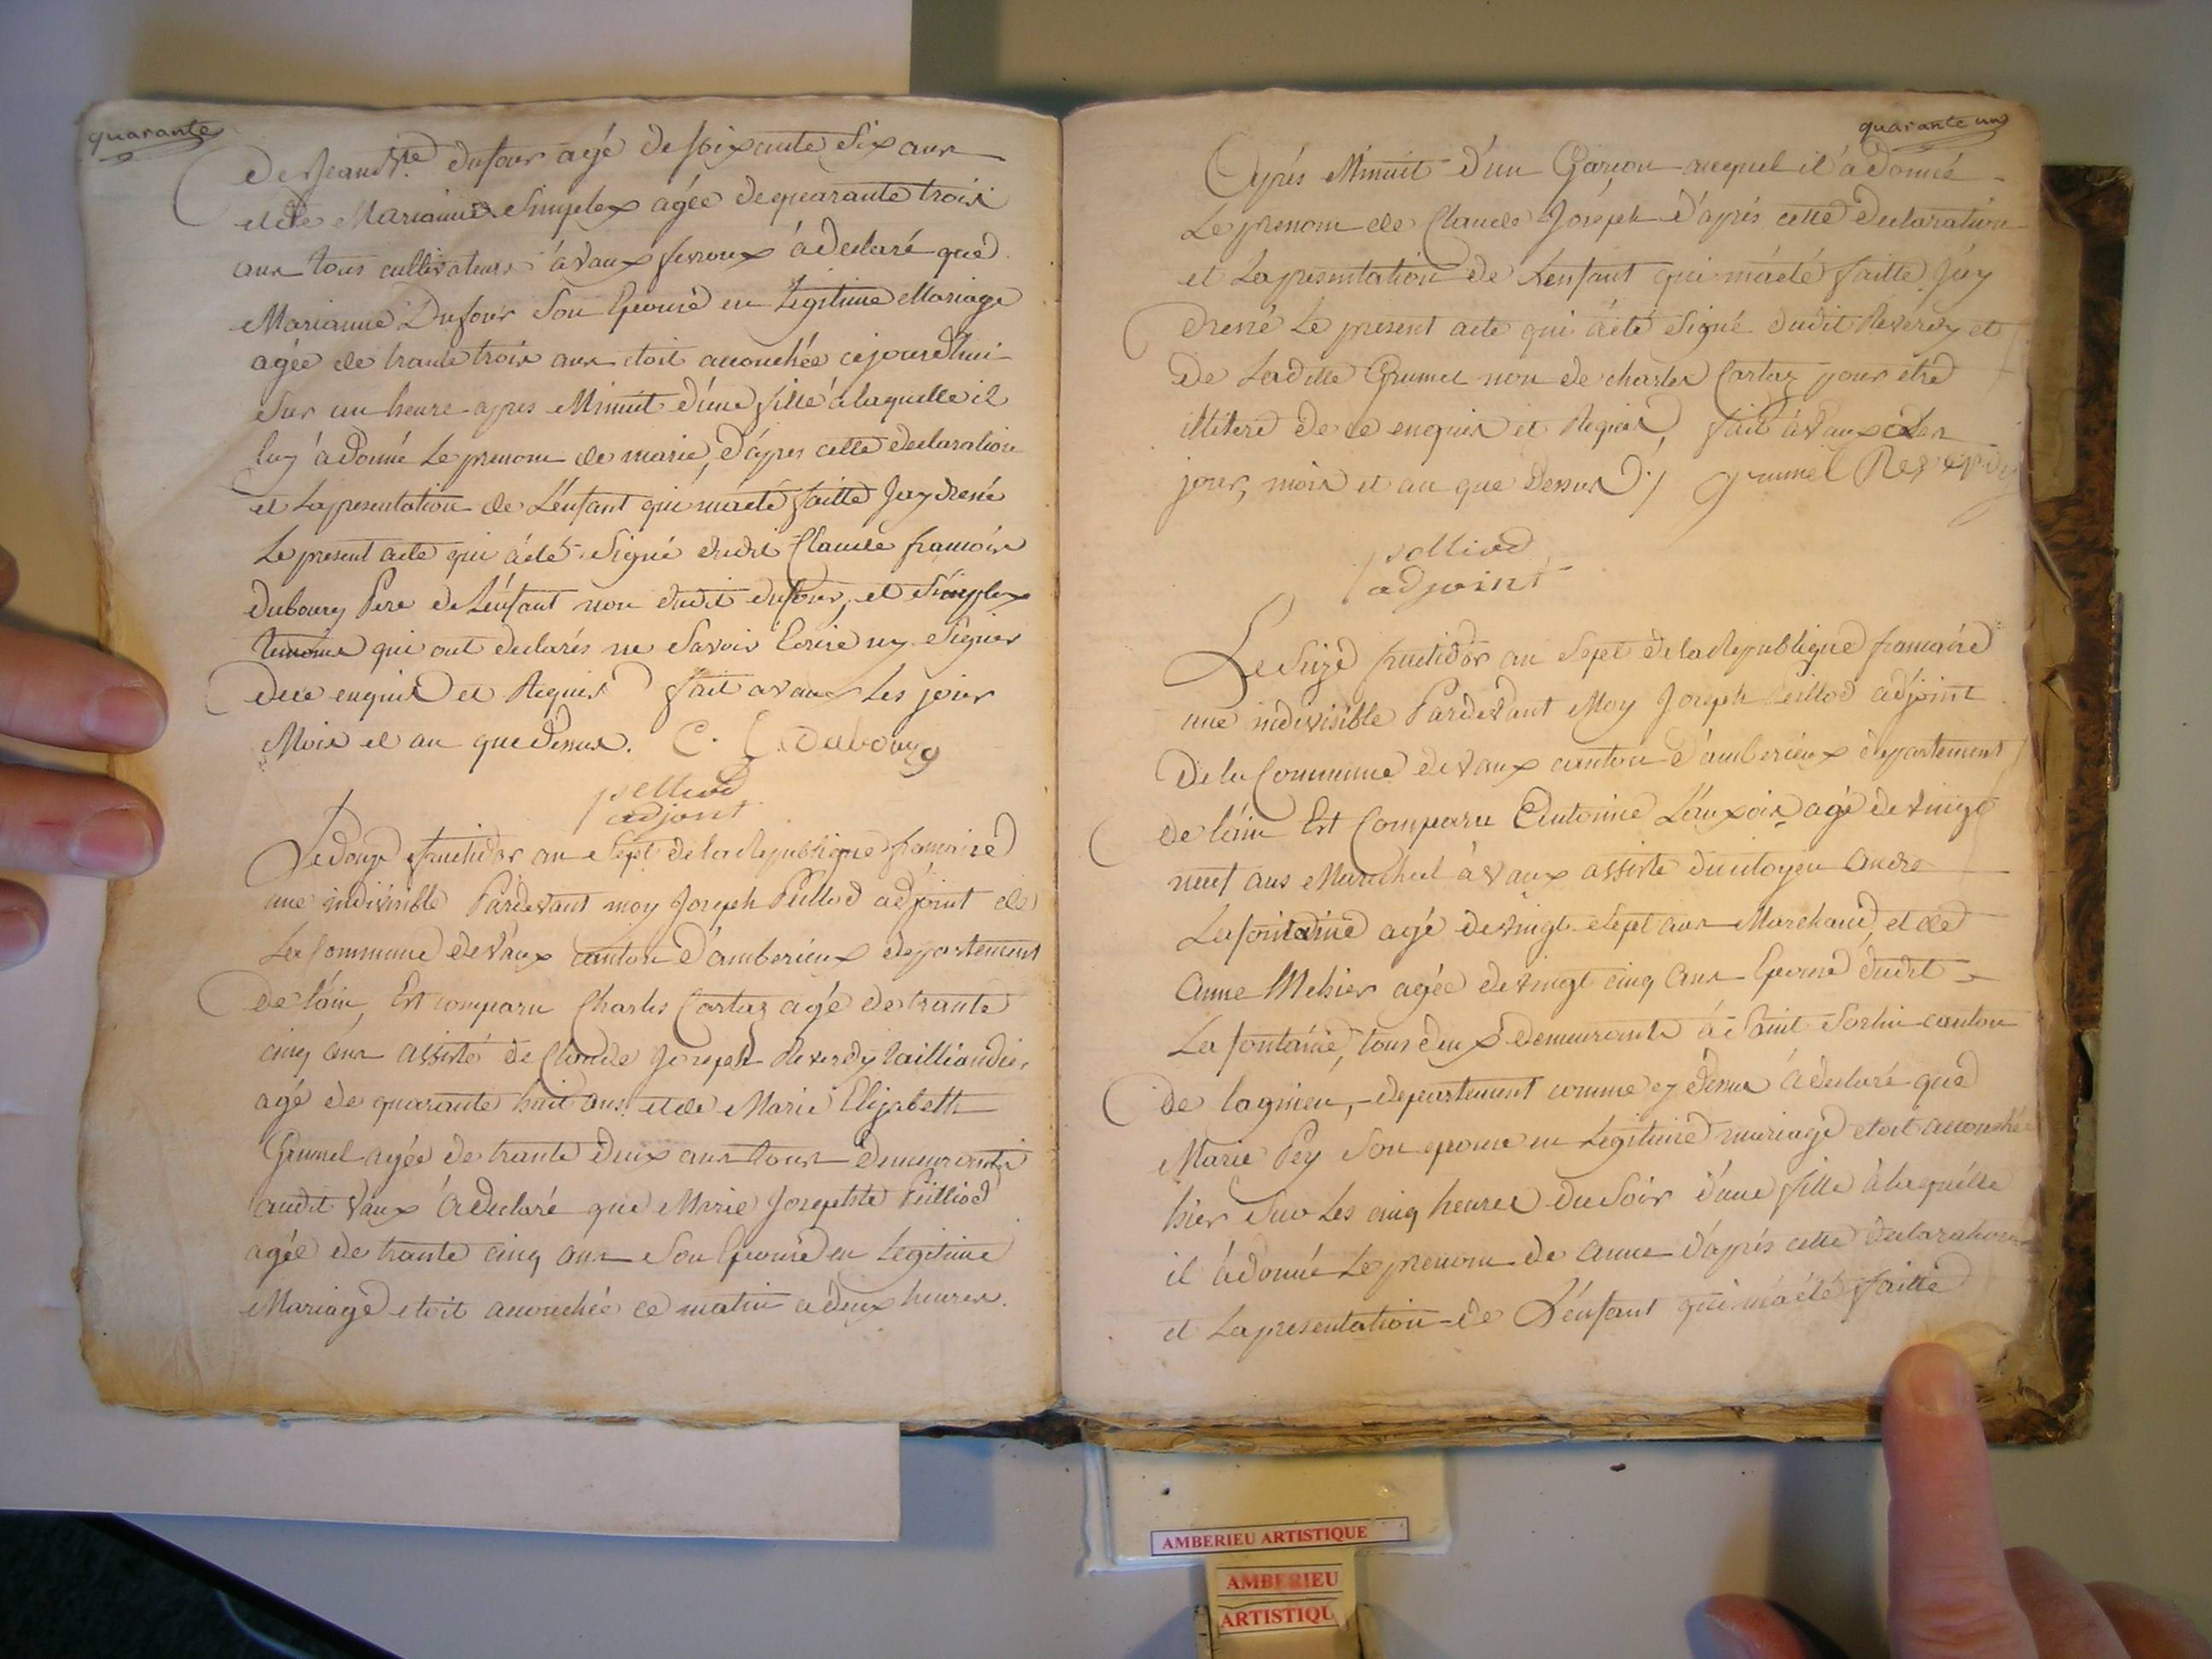 quarante
De Jean Bte. dufour agé de soixante six ans
et de Marianne Simplex agée de quarante trois
ans tous cultivateurs à vaux fevroux à declaré que
Marianne Dufour Son Epouse en Legitime Mariage
agée de trante trois ans etoit accouchée cejourd'hui
Sur un heure apres Minuit d'une fille à laquelle il
luy à donné Le prenom de marie, d'apres cette declaration
et La presentation de L'enfant qui m'a eté faitte Jay dressé
Le present acte qui à eté Signé dudit Claude francois
dubourg Pere de L'enfant non dudit dufour, et Simplex
temoins qui ont declarés ne Savoir Ecrire ny Signer
de ce enquis et Requis fait a vaux Les jour
Mois et an que dessus. C. f. Dubourg
peilliod
adjoint
Le douze fructidor an Sept de la Republique francaise
une indivisible Pardevant moy Joseph Peilliod adjoint de
La Commune de Vaux canton d'amberieux departement
de l'ain, Est comparu Charles Cartaz agé de trante
cinq ans assisté de Claude Joseph Reverdy tailliandier
agé de quarante huit ans, et de Marie Elizabeth
Grumel agée de trante deux ans tous demeurants
audit Vaux à declaré que Marie Josephte Peilliod
agée de trante cinq ans Son Epouse en Legitime
Mariage etoit accouchée ce matin a deux heures
quarante un
Après Minuit d'un Garçon auquel il à donné
Le prenom de Claude Joseph d'après cette declaration
et La presentation de L'enfant qui m'a eté faitte Jay
dressé Le present acte qui à eté Signé dudit Reverdy et
de Ladite Grumel non de charles Cartaz pour etre
illiteré de ce enquis et Requis, fait à Vaux Les
jour, mois et an que Dessus ./ grumel Reverdy
peilliod
adjoint
Le Seize fructidor an Sept de la Republique francaise
une indivisible Pardevant Moy Joseph Peilliod adjoint
de la Commune de Vaux canton d'amberieux departement
de l'ain Est Comparu Antoine Lauxois agé de vingt
neuf ans Marechal à Vaux assisté du citoyen andré
Lafontaine agé de vingt Sept ans Marchand, et de
Anne Mehier agée de vingt cinq ans Epouse dudit
La fontaine, tous deux demeurants à Saint Sorlin canton
de lagnieu, departement comme cy dessus à declaré que
Marie Pey Son epouse en Legitime mariage etoit accouchée
hier Sur Les cinq heures du Soir d'une fille à laquelle
il à donné Le prenom de anne d'après cette declaration
et La presentation de L'enfant qui m'a eté faitte
AMBERIEU ARTISTIQUE
AMBERIEU
ARTISTIQU